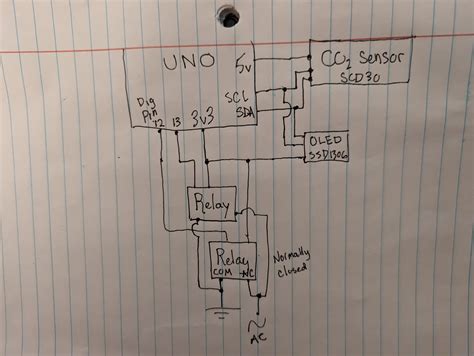 UNO
5v
CO2 Sensor
SCD30
SCL
SDA
Dig
Pin
12 13 3v3
OLED
SSD1306
Relay
Relay
COM NC
Normally
closed
AC